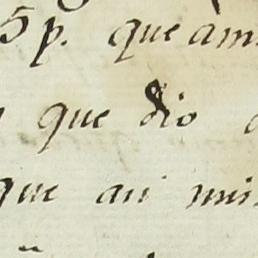 5 p. que am
que dio
que an mis